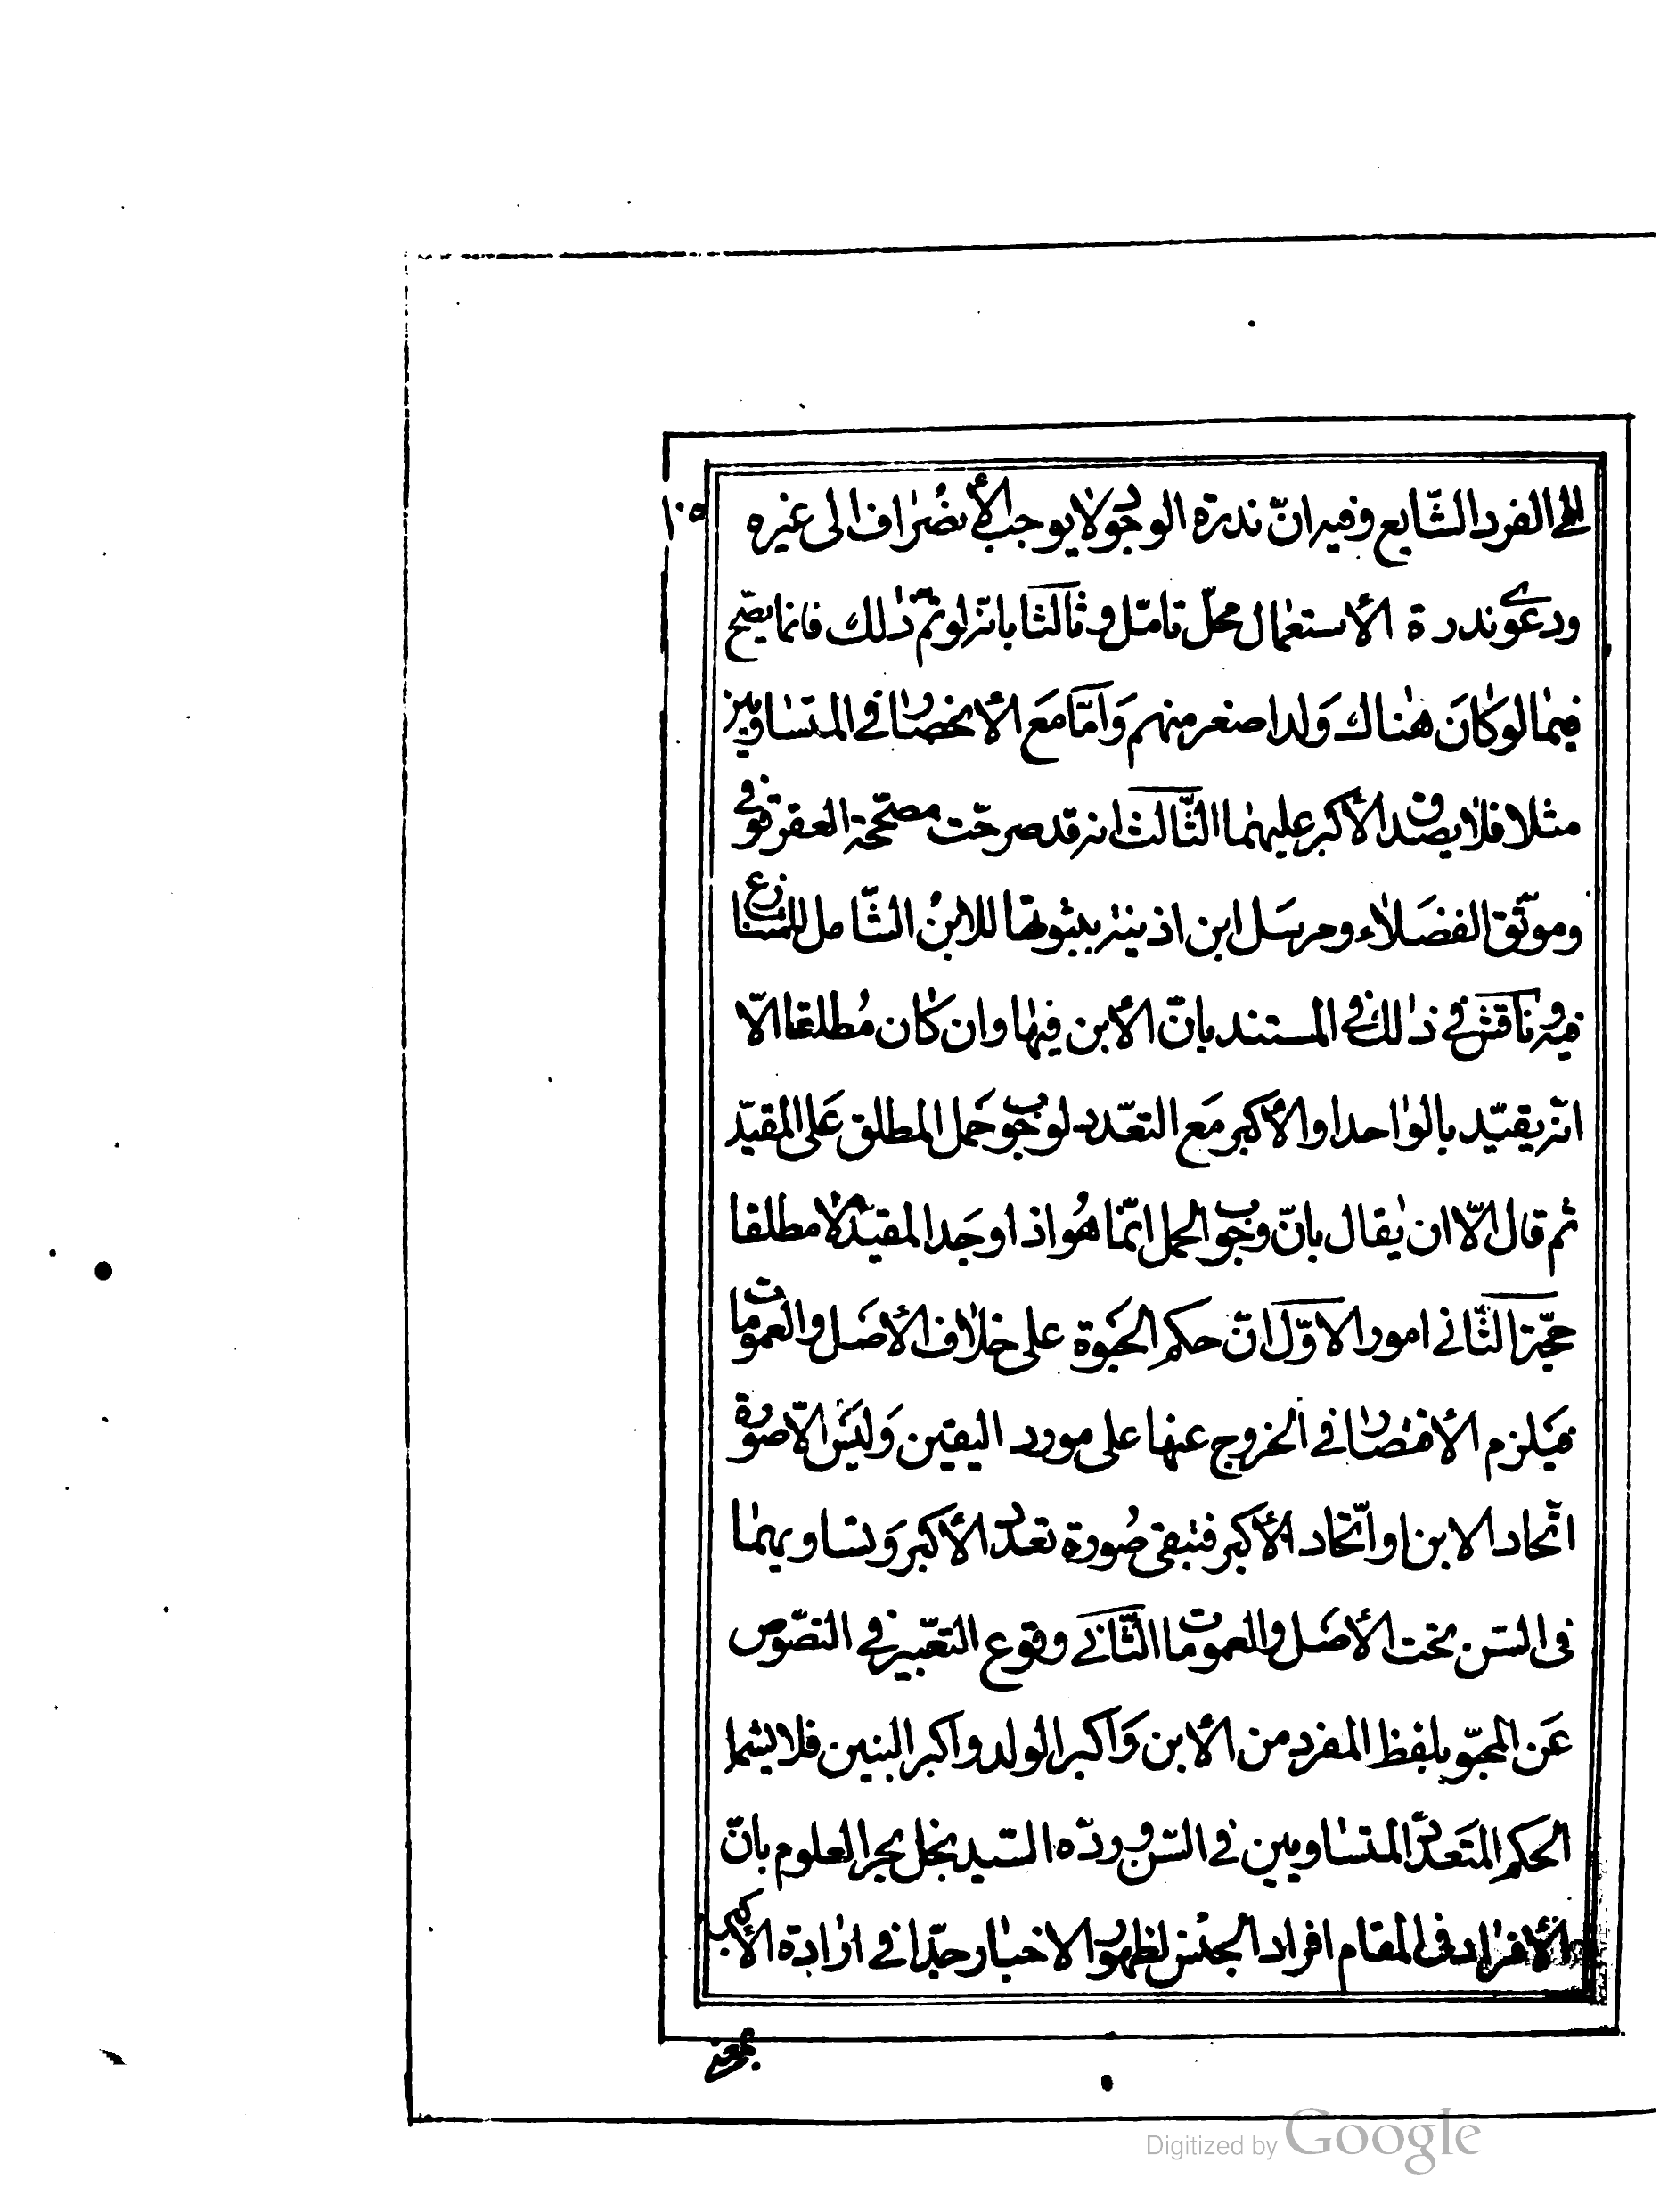 الى الفرد الشّايع وفيه انّ ندرة الوجود لا يوجب الأنضراف الى غيره
١٠٥
ودعوى ندرة الأستعمال محلّ تامّل وثالثا بانّه لو تمّ ذلك فانما يصّح
فيما لو كان هناك ولد اصغر منهم وامّا مع الأنحصار في المتساويين
مثلا فلا يصدق الأكبر عليهما الثّالث انه قد صرحّت مصحّحة العقرقوفى
وموثّق الفضلاء ومرسل ابن اذينه بثبوتها للابن الشّامل للمتنازع
فيه وناقش في ذلك في المستند بانّ الأبن فيها وان كان مُطلقا الّا
انّه يقيّد بالواحد او الأكبر مع التعّدد لوجوب حمل المطلق على المقيّد
ثم قال الّا ان يقال بانّ وجوب الحمل انّما هو اذا وجد المقيّد لا مطلقا
حجّة الثّاني امور الاوّل انّ حكم الحبوة على خلاف الأصل والعمومات
فيلزم الأقتصار في الخروج عنها على مورد اليقين وليس الّا صورة
اتّحاد الابن او اتّحاد الأكبر فتبقى صُورة تعدد الأكبر وتساويهما
فى السّن تحت الأصل والعمومات الثّاني وقوع التعّبير في النصّوص
عن المحبّو بلفظ المفرد من الأبن واكبر الولد واكبر البنين فلا يشمل
الحكم المتعدّد المتساويين في السّن وردّه السّيد نجل بحر العلوم بانّ
الأفراد فى المقام افراد الجنس لظهور الاخبار جدّا في ارادة الأكبر
Digitized by Google